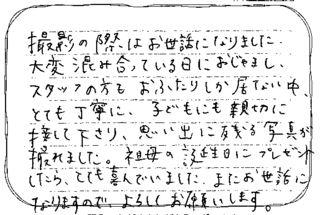 撮影の際はお世話になりました。
大変混み合っている日におじゃまし、
スタッフの方もおふたりしか居ない中、
とても丁寧に、子どもにも親切に
接して下さり、思い出に残る写真が
撮れました。祖母の誕生日にプレゼント
したら、とても喜んでいました。またお世話に
なりますので、よろしくお願いします。